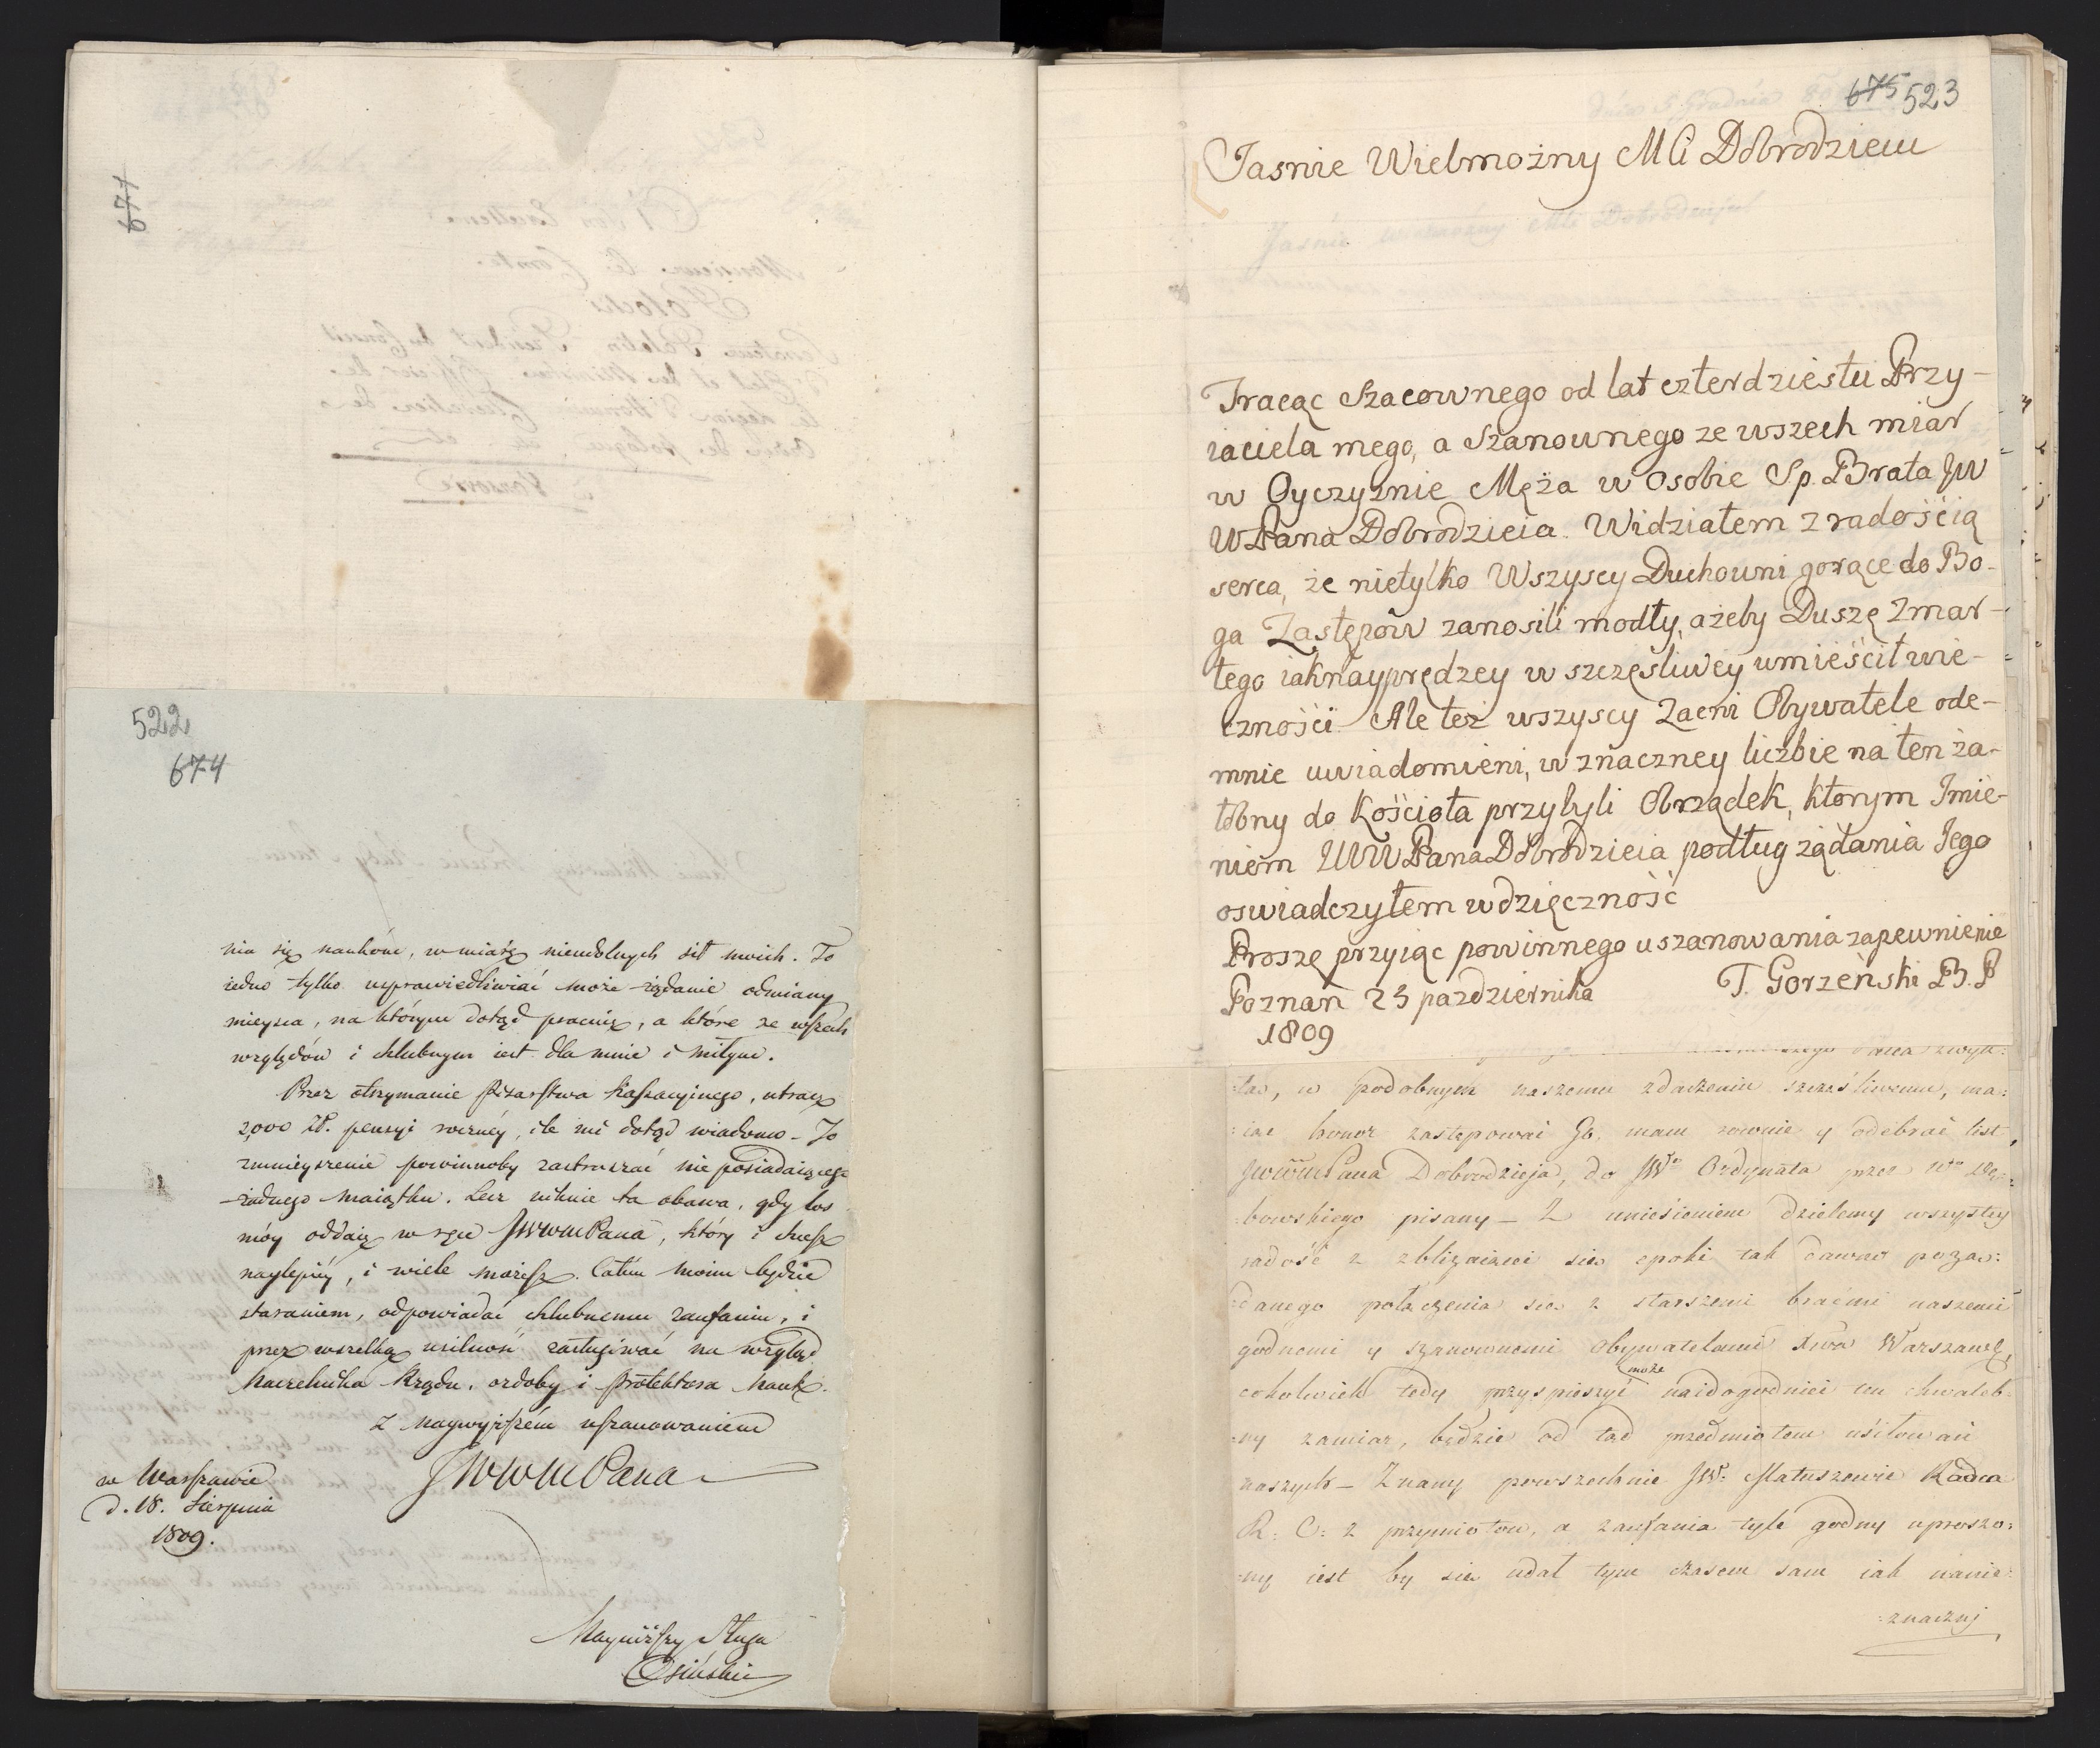 677
522
674
nia się naukóm, w miarę nieudolnych sił moich. To
iedno tylko usprawiedliwiać może żądanie odmiany
mieysca, na którym dotąd pracuię, a które ze wszech
względów i chlubnym iest dla mnie i miłym.
Przez otrzymanie Pisarstwa Kassacyjnego, utracę
2,000 Zł. pensyi roczney, ile mi dotąd wiadomo - To
zmnieyszenie powinnoby zastraszać nie posiadaiącego
żadnego maiątku. Lecz niknie ta obawa, gdy los
móy oddaię w ręce JWWMPana, który i chcesz
naylepiéy, i wiele możesz. Całém moim będzie
staraniem, odpowiadać chlubnemu zaufaniu, i
przez wszelką usilność zasługiwać na wzgląd
Naczelnika Rządu, ozdoby i Protektora Nauk.
Z naywyższém uszanowaniem
JWWMPana
w Warszawie
d. 18. Sierpnia
1809.
Nayniższy Sługa
Osiński
675 523
Jasnie Wielmożny MCi Dobrodzieiu
Tracąc Szacownego od lat czterdziestu Przy-
iaciela mego, a Szanownego ze wszech miar
w Oyczyznie Męża w Osobie Sp. Brata JW
WPana Dobrodzieia. Widziałem z radością
serca, że nietylko Wszyscy Duchowni gorące do Bo-
ga Zastępow zanosili modły, ażeby Duszę Zmar-
łego iaknayprędzey w szczęsliwey umieścił wie-
czności. Ale też wszyscy Zacni Obywatele ode-
mnie uwiadomieni, w znaczney liczbie na ten ża-
łobny do Kościoła przybyli Obrządek, ktorym Imie-
niem JWWPana Dobrodzieia podług żądania Jego
oswiadczyłem wdzięczność
Proszę przyiąc powinnego uszanowania zapewnienie
Poznan 23 pazdziernika T. Gorzeński B.P
1809
tas, w podobnym naszemu zdarzeniu szcześliwemu, ma:
:iąc honor zastępować Go, mam rownie y odebrać list
JWWMPana Dobrodzieja, do JWo Ordynata przez
:bowskiego pisany - Z uniesieniem dzielemy wszystcy
radość z zbliżaiącei się epoki tak dawno pożą:
:danego połączenia się z starszemi braćmi naszemi
godnemi y szanownemi Obywatelami Xtwa Warszaws:
cokolwiek tedy przyspieszyć może naidogodniei ten chwaleb:
:ny zamiar, będzie od tąd przedmiotem usiłowań
naszych - Znany powszechnie JWP: Matuszewic Radca
R: C: z przymiotow, a zaufania tyle godny uproszo:
:ny iest by się udał tym czasem sam iak
:znacznj